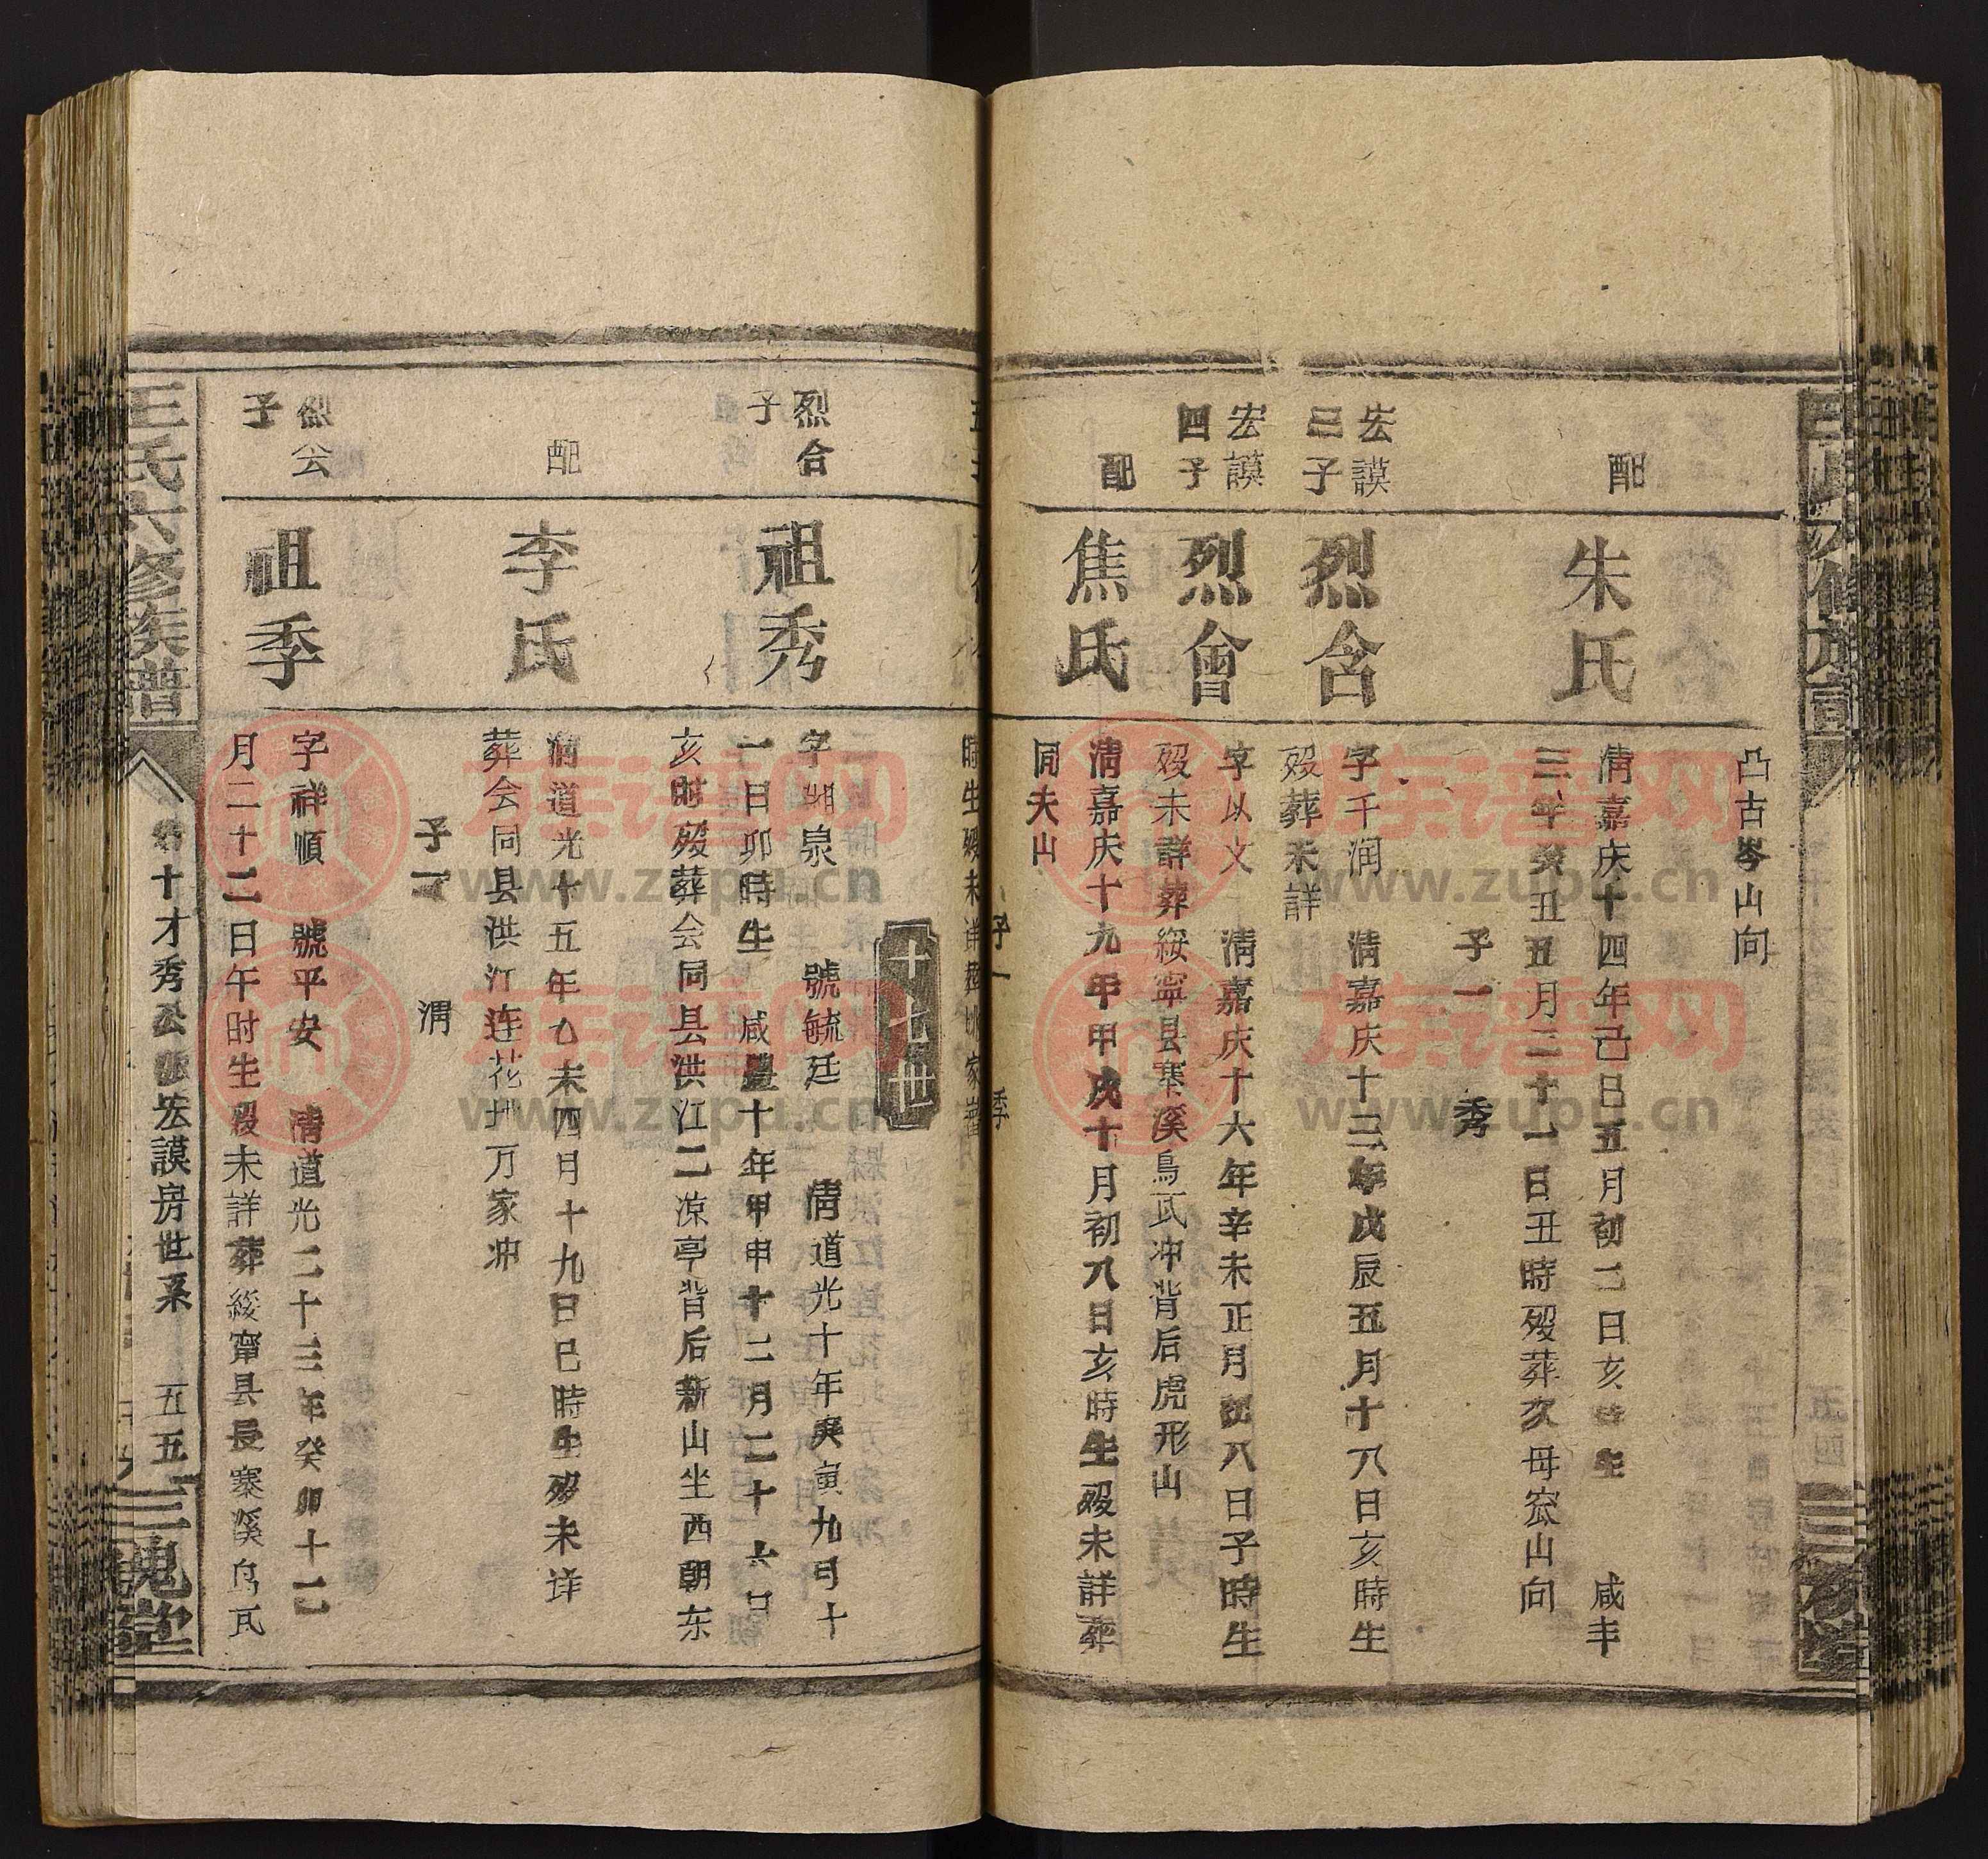 凸古岑山向
配
朱氏
清嘉庆十四年己巳五月初二日亥時生 咸丰
三年癸丑五月二十一日丑時殁葬次母窊山向
子一 秀
宏謨
三子
烈含
字千润 清嘉庆十三年戊辰五月十八日亥時生
殁葬未詳
宏謨
四子
烈會
字以文 清嘉庆十六年辛未正月初八日子時生
殁未詳葬綏寧县寨溪鳥瓦冲背后虎形山
配
焦氏
清嘉庆十九年甲戌十月初八日亥時生殁未詳葬
同夫山
子一 季
時生殁未详
十七世
烈合
子
祖秀
字湘泉 號毓廷 清道光十年庚寅九月十
一日卯時生 咸豐十年甲申十二月二十六日
亥时殁葬会同县洪江二凉亭背后新山坐西朝东
配
李氏
清道光十五年乙未四月十九日巳時生殁未详
葬会同县洪江连花地万家冲
子一 渭
烈会
子
祖季
字祥順 號平安 清道光二十三年癸卯十二
月二十二日午时生殁未詳葬綏甯县長寨溪鸟瓦
王氏六修族譜
十才秀公派宏謨房世系
五五
三槐堂
族谱网
www.zupu.cn
族谱网
www.zupu.cn
族谱网
www.zupu.cn
族谱网
www.zupu.cn